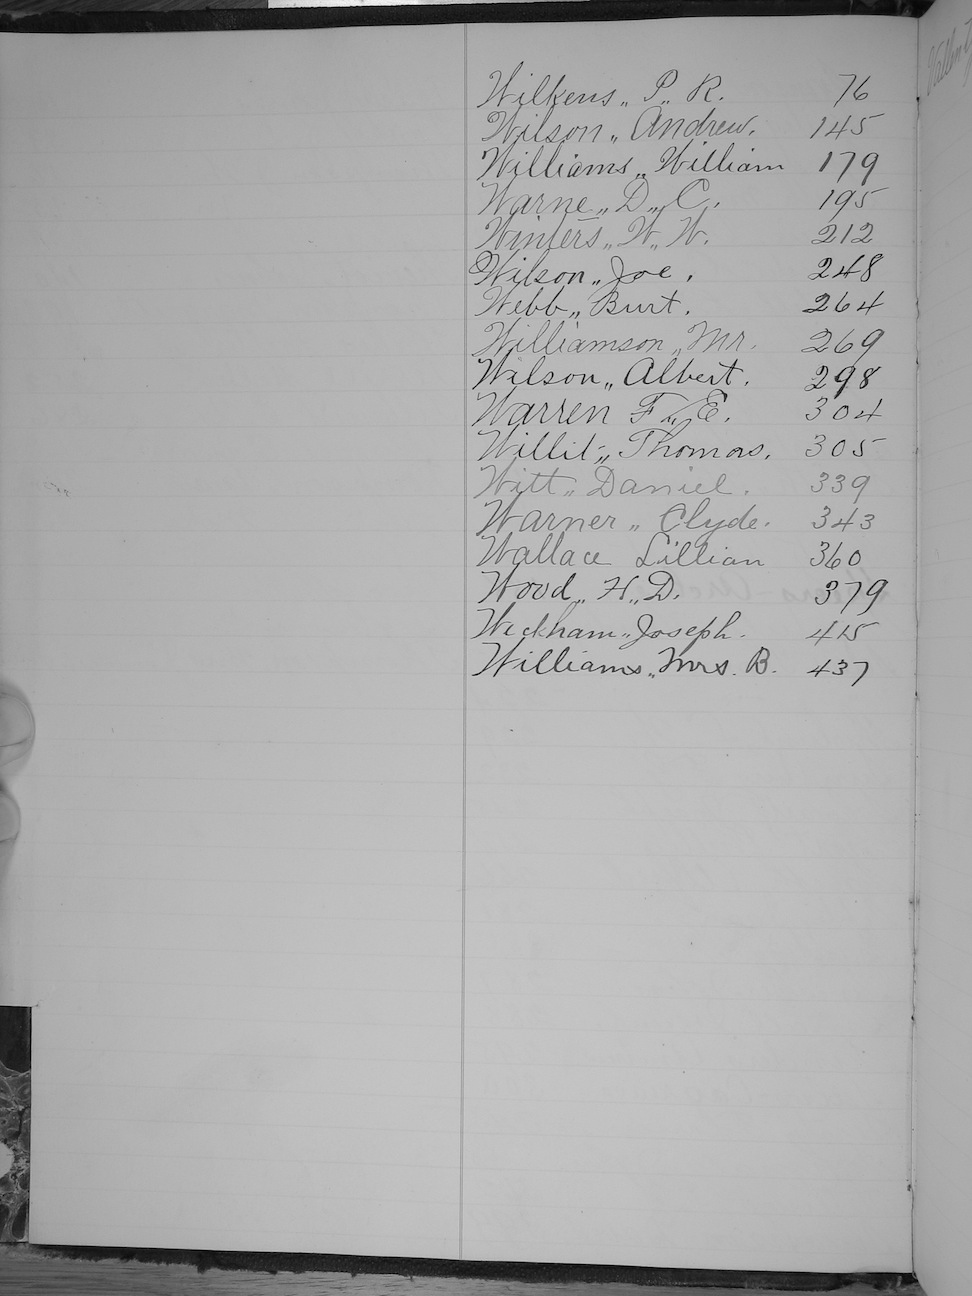 Wilkens,, P,, R. 76
Wilson,, Andrew. 145
Williams,, William 179
Warne,, D,, C. 195
Winters,, W,, W. 212
Wilson,, Joe. 248
Webb,, Burt. 264
Williamson,, Mr. 269
Wilson,, Albert. 298
Warren F,, E. 304
Willit,, Thomas. 305
Witt,, Daniel. 339
Warner,, Clyde. 343
Wallace Lillian 360
Wood,, H,, D. 379
Weckham,, Joseph. 415
Williams,, Mrs. B. 437